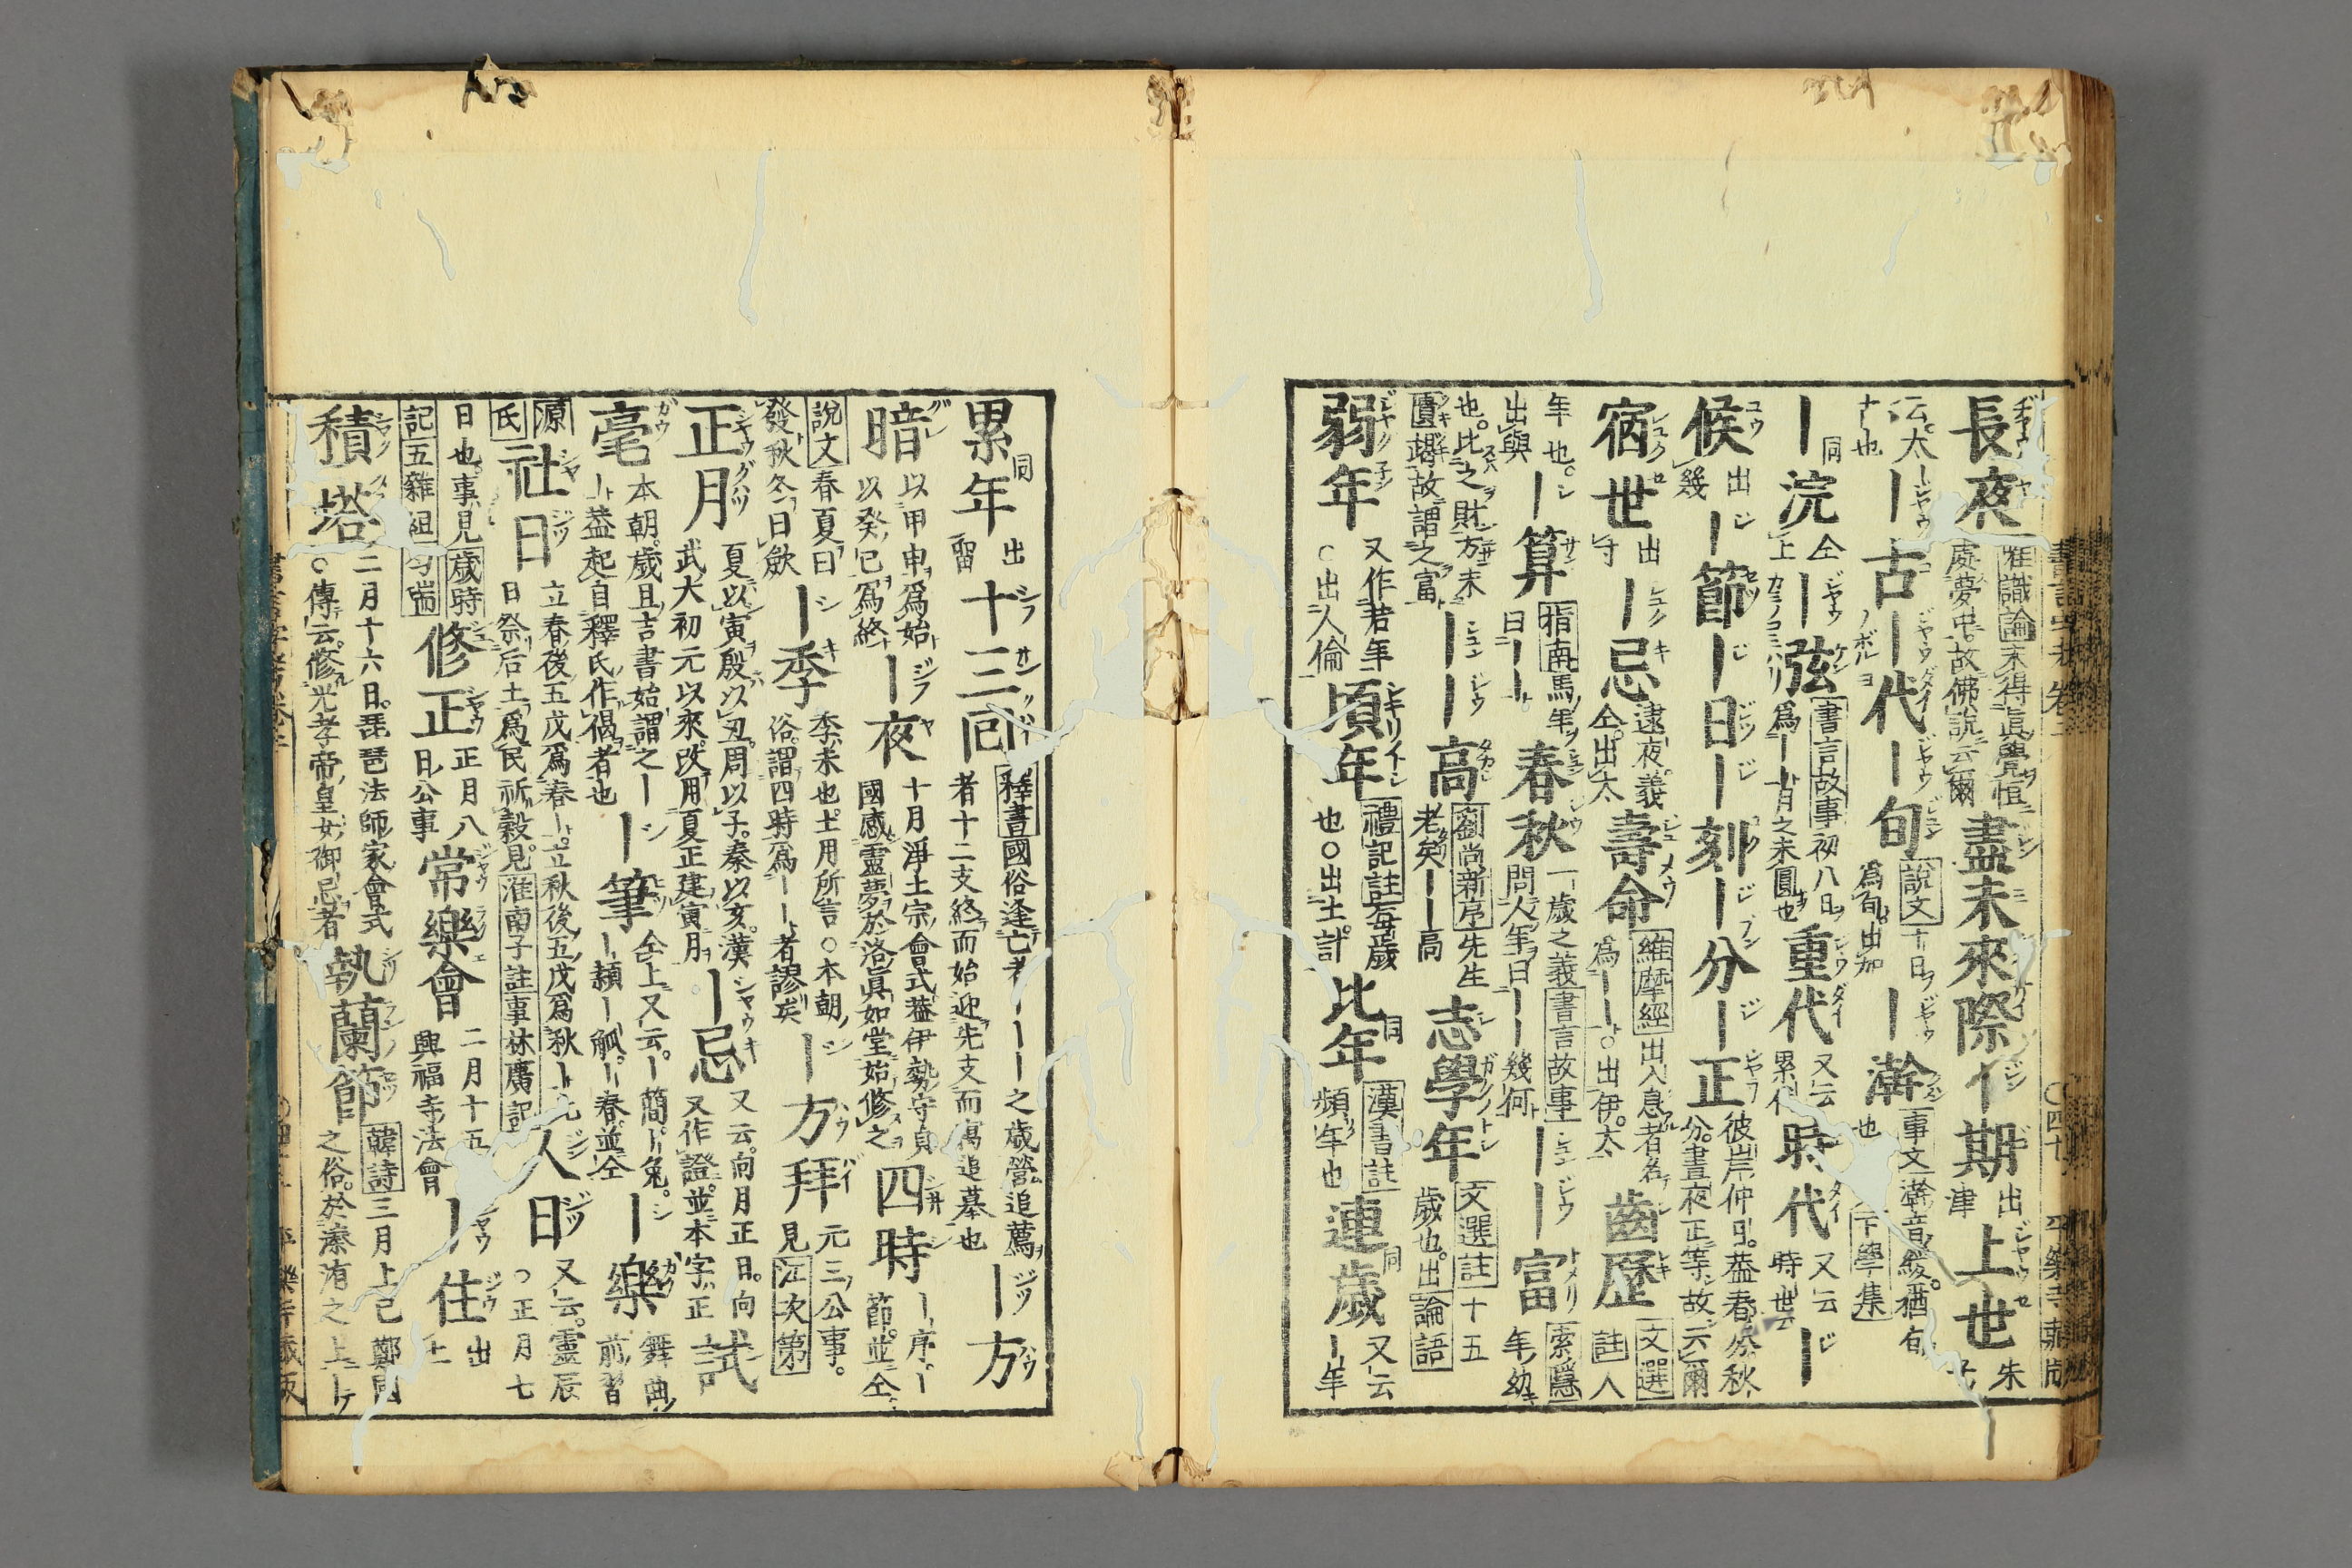 長夜 唯識論未得眞覺恒
處夢中故佛說云爾 盡未來際 ー期 出
津 上世 朱
云太
十也 ー古 ー代 ー旬 說文十日
爲旬出加 ー澣 事文澣音緩猶旬
也下學集
ー 同 浣 仝
上 ー弦 書言故事初八日
爲ーー月之未圓也 重代 又云
累代 時代 又云
時世 ー
候 出
幾 ー節 ー日 ー刻 ー分 ー正 彼岸仲日蓋春分秋
分晝夜正等故云爾
宿世 出
寸 ー忌 逮夜義
仝出太 壽命 維摩經出入息者名
爲ーー○出伊太 齒歷 文選
註人
年也
出與 ー算 指南馬年
曰ーー 春秋 一歲之義書言故事
問人年曰ーー幾何 ーー富 索隱
年幼
也比之財方未
匱竭故謂之富 ーー高 劉尚新序先生
老矣ーー高 志學年 文選註十五
歲也出論語
弱年 又作若年
○出人倫 頃年 禮記註每歲
也○出土計 比年 同 漢書註
頻年也 連歲 同 又云
ー年
累年 同 出
留 十三回 釋書國俗逢亡者ーーー之歲營追薦
者十二支終而始迎先支而寓追慕也 ー方
暗 以甲申爲始
以癸巳爲終 ー夜 十月淨土宗會式蓋伊勢守貞
國感靈夢於洛眞如堂始修之 四時 ー序ー
節並仝
說文春夏曰
發秋冬曰歛 ー季 季末也土用所言○本朝
俗謂四時爲ーー者謬矣 ー方拜 元三公事
見江次第
正月 夏以寅殷以丑周以子秦以亥漢
武太初元以來改用夏正建寅月 ー忌 又云向月正日向
又作證並本字正 試
毫 本朝歲且吉書始謂之ー
ー蓋起自釋氏作偈者也 ー筆 仝上又云ー簡ー兔
ー穎ー觚ー春並仝 ー樂 舞曲
前習
源
氏 社日 立春後五戊爲春ー立秋後五戊爲秋ー
日祭后土爲民祈穀見淮南子註事林廣記 人日 又云靈辰
○正月七
日也事見歲時
記五雜俎 修正 正月八
日公事 常樂會 二月十五
興福寺法會 ー住 出
土
積塔 二月十六日琵琶法師家會式
○傳云修光孝帝皇女御忌者 執蘭節 韓詩三月上巳鄭國
之俗於溱洧之上ー